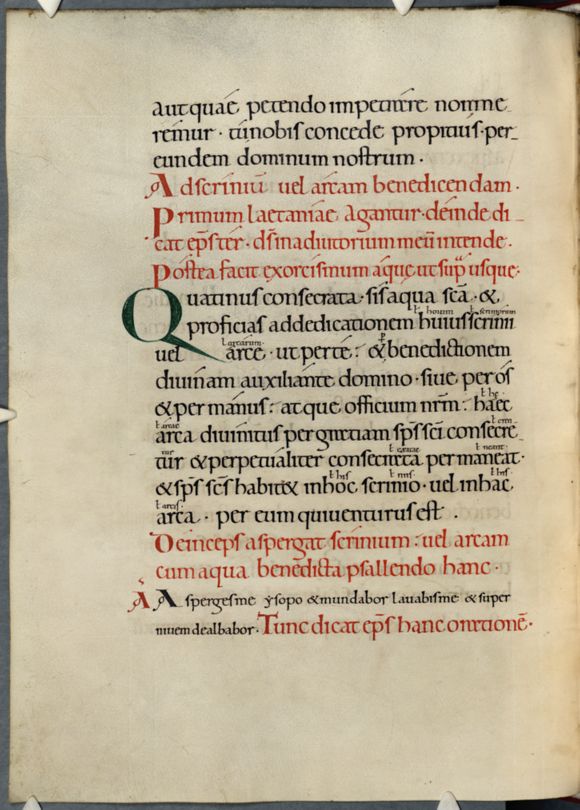 aut quae petendo impetrare nomine
remur · tu nobis concede propitius · per
eundem dominum nostrum ·
Ad scriniū uel arcam benedicendam ·
Primum laetaniae agantur · deinde di
cat ep̄s ter · d̄s in adiutorium meū intende ·
Postea facit exorcismum aquę ut sup̄ usque ·
Quatinus consecrata sis aqua s̄c̄a · &
ł horum ł scriniorum
proficias ad dedicationem huius scrinii
ł arcarum
uel arcę · ut per te : & benedictionem
diuinam auxiliante domino · siue per os
ł hę
& per manus : atque officium n̄r̄m : haec
ł arcae ł cren
arca diuinitus per gratiam sp̄s s̄c̄i consecre
tur & perpetualiter consecrata permaneat ·
ł his ł niis ł his
& sp̄s s̄c̄s habitet in hoc scrinio · uel in hac
ł arcis
arca · per eum qui uenturus est ·
Deinceps aspergat scrinium : uel arcam
cum aqua benedicta psallendo hanc ·
A Asperges me ysopo & mundabor lauabis me & super
niuem dealbabor · Tunc dicat ep̄s hanc orationē ·